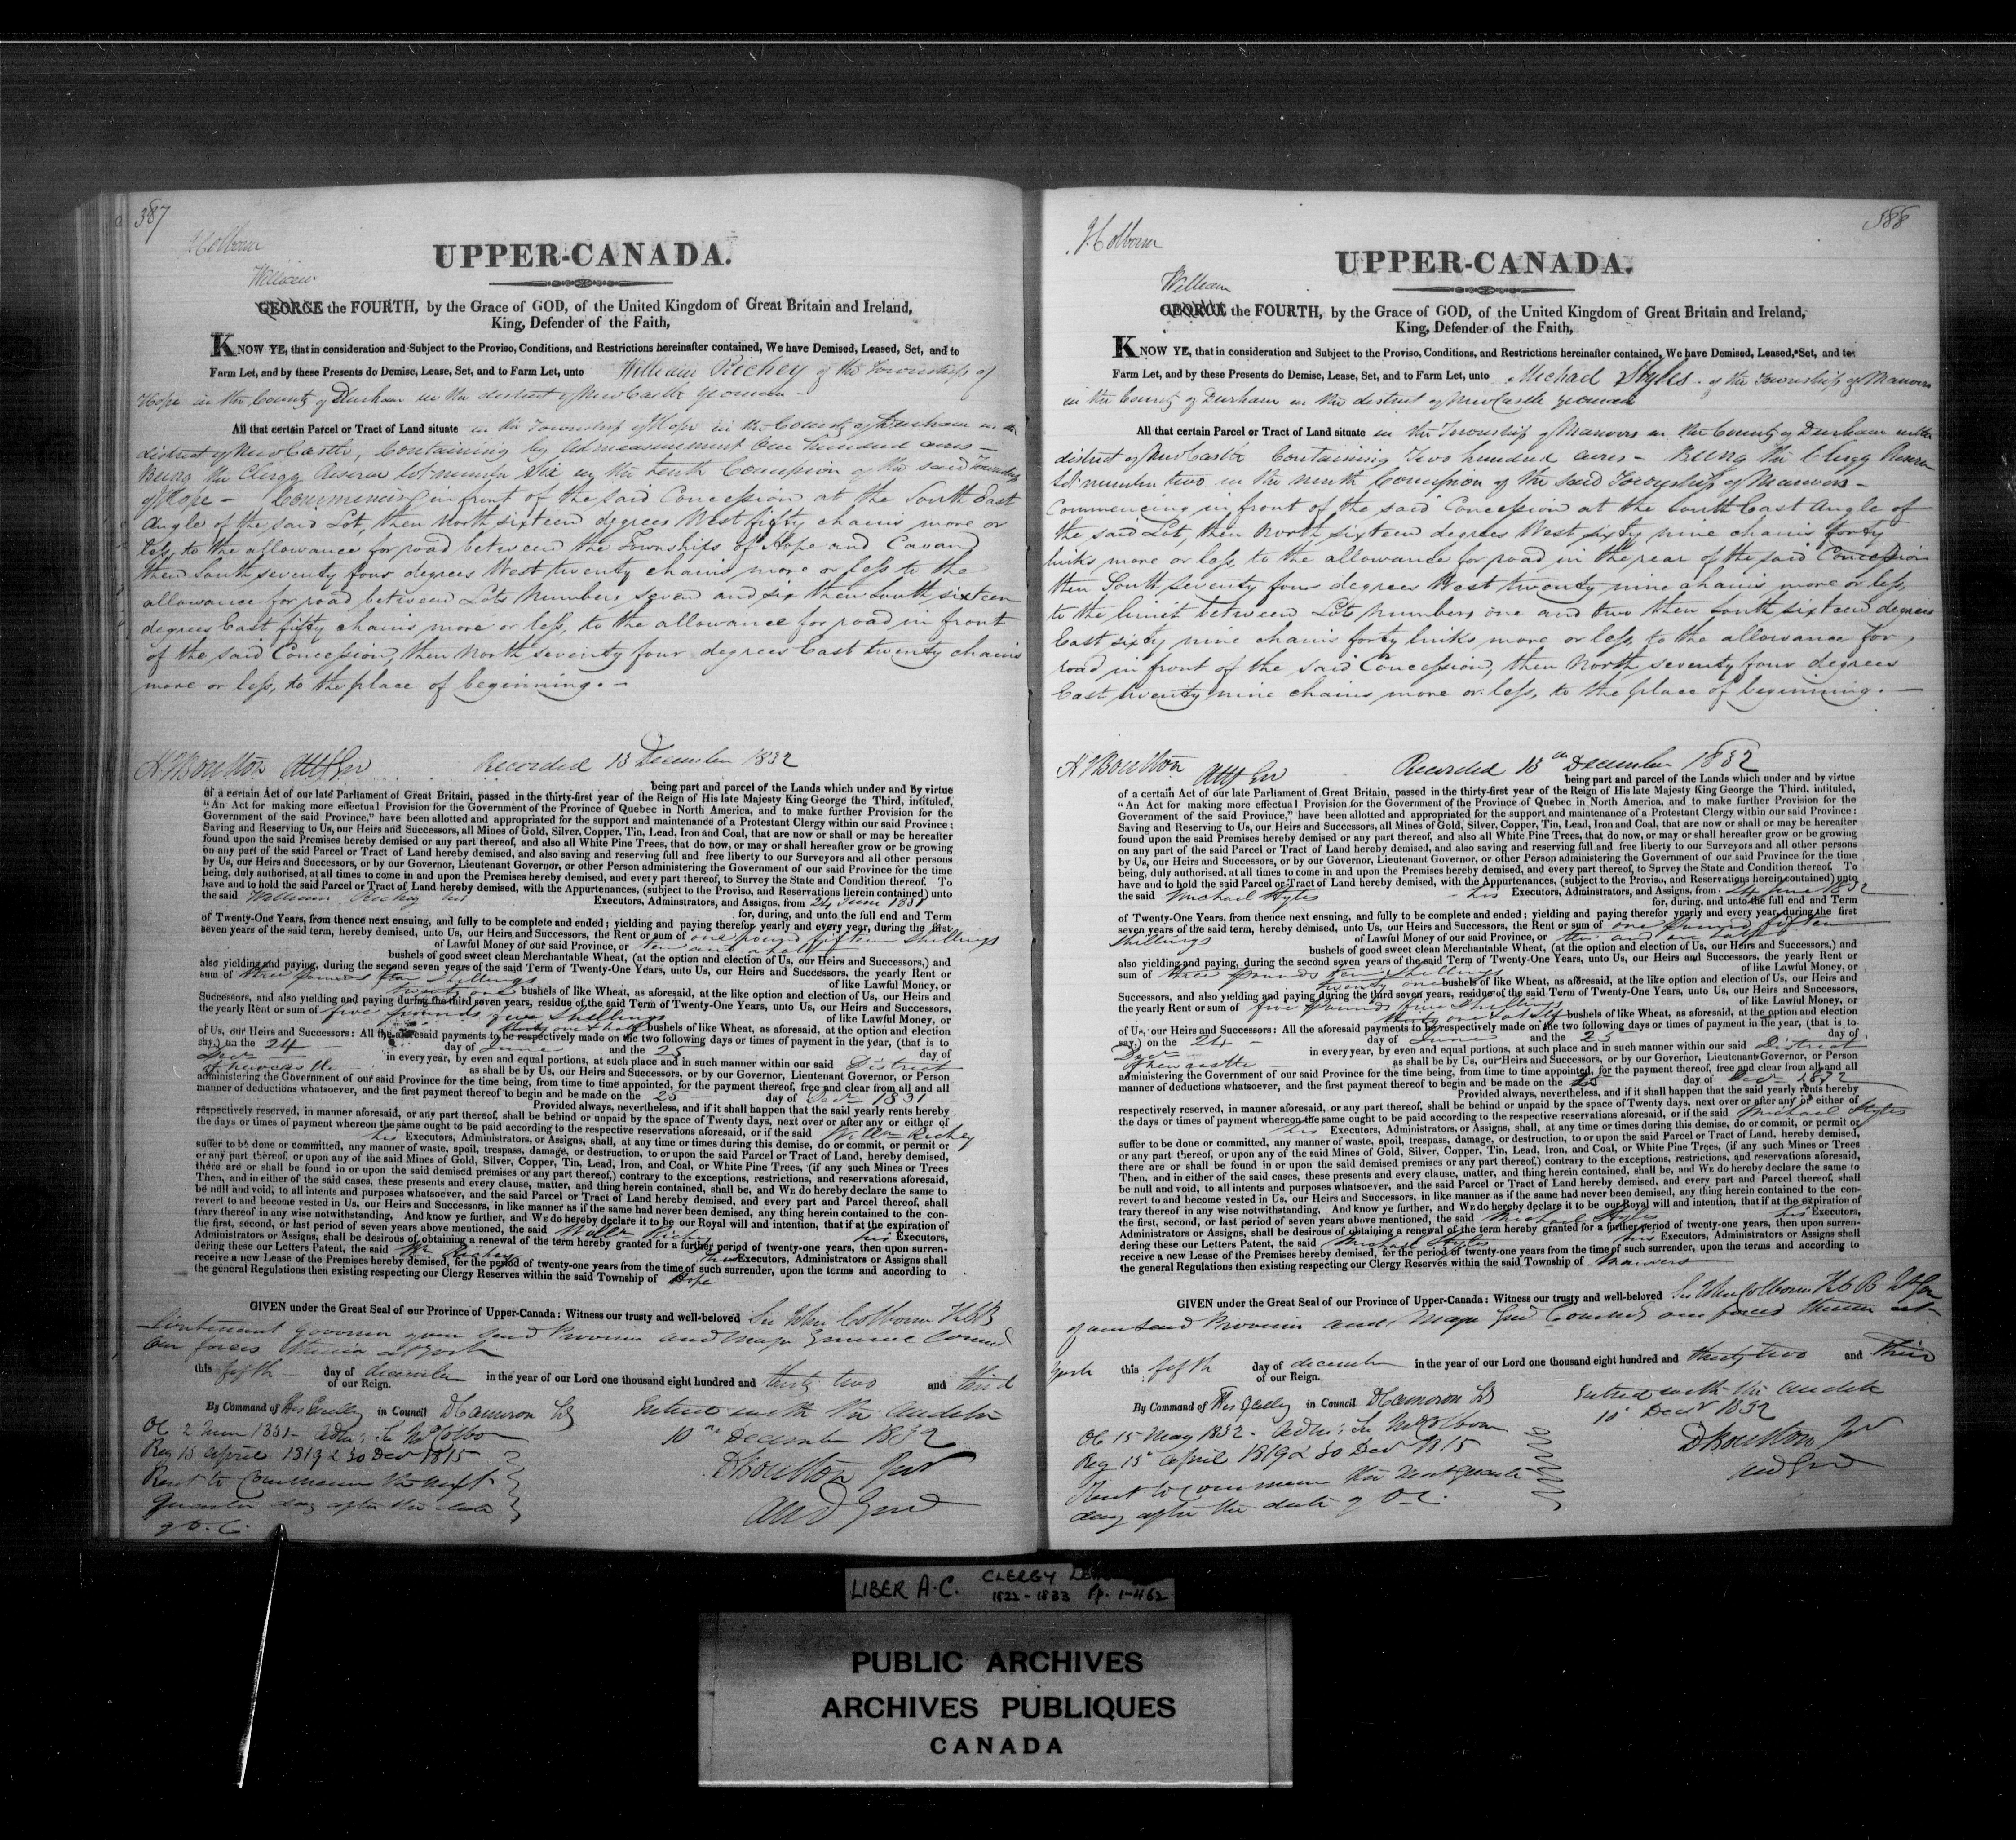 387
J. Colborne
UPPER-CANADA.
William
GEORGE the FOURTH, by the Grace of GOD, of the United Kingdom of Great Britain and Ireland,
King, Defender of the Faith,
KNOW YE, that in consideration and Subject to the Proviso, Conditions, and Restrictions hereinafter contained, We have Demised, Leased, Set, and to
Farm Let, and by these Presents do Demise, Lease, Set, and to Farm Let, unto William Richey of the Township of
Hope in the County of Durham in the district of New Castle yeoman -
All that certain Parcel or Tract of Land situate in the Township of Hope in the County of Durham in the
district of New Castle, Containing by admeasurement One hundred acres -
Being the Clergy Reserve Lot number Six in the tenth Concession of the said Township
of Hope - Commencing in front of the said Concession at the South East
Angle of the said Lot, then North sixteen degrees West fifty chains more or
less, to the allowance for road between the Townships of Hope and Cavan
then South seventy four degrees West twenty chains more or less to the
allowance for road between Lots Numbers seven and six then South sixteen
degrees East fifty chains more or less, to the allowance for road in front
of the said Concession, then North seventy four degrees East twenty chains
more or less, to the place of beginning. -
H J Boulton Att Gen Recorded 13 December 1832
being part and parcel of the Lands which under and by virtue
of a certain Act of our late Parliament of Great Britain, passed in the thirty-first year of the Reign of His late Majesty King George the Third, intituled,
"An Act for making more effectual Provision for the Government of the Province of Quebec in North America, and to make further Provision for the
Government of the said Province," have been allotted and appropriated for the support and maintenance of a Protestant Clergy within our said Province:
Saving and Reserving to Us, our Heirs and Successors, all Mines of Gold, Silver, Copper, Tin, Lead, Iron and Coal, that are now or shall or may be hereafter
found upon the said Premises hereby demised or any part thereof, and also all White Pine Trees, that do now, or may or shall hereafter grow or be growing
on any part of the said Parcel or Tract of Land hereby demised, and also saving and reserving full and free liberty to our Surveyors and all other persons
by Us, our Heirs and Successors, or by our Governor, Lieutenant Governor, or other Person administering the Government of our said Province for the time
being, duly authorised, at all times to come in and upon the Premises hereby demised, and every part thereof, to Survey the State and Condition thereof. To
have and to hold the said Parcel or Tract of Land hereby demised, with the Appurtenances, (subject to the Proviso, and Reservations herein contained) unto
the said William Richey his Executors, Adminstrators, and Assigns, from 24 June 1831
for, during, and unto the full end and Term
of Twenty-One Years, from thence next ensuing, and fully to be complete and ended; yielding and paying therefor yearly and every year, during the first
seven years of the said term, hereby demised, unto Us, our Heirs and Successors, the Rent or sum of one pound fifteen shillings
of Lawful Money of our said Province, or ten and a half
bushels of good sweet clean Merchantable Wheat, (at the option and election of Us, our Heirs and Successors,) and
also yielding and paying, during the second seven years of the said Term of Twenty-One Years, unto Us, our Heirs and Successors, the yearly Rent or
sum of three pounds ten shillings of like Lawful Money, or
twenty one bushels of like Wheat, as aforesaid, at the like option and election of Us, our Heirs and
Successors, and also yielding and paying during the third seven years, residue of the said Term of Twenty-One Years, unto Us, our Heirs and Successors,
the yearly Rent or sum of five pounds five shillings of like Lawful Money, or
thirty one & half bushels of like Wheat, as aforesaid, at the option and election
of Us, our Heirs and Successors: All the aforesaid payments to be respectively made on the two following days or times of payment in the year, (that is to
say,) on the 24 day of June and the 25 day of
Decr in every year, by even and equal portions, at such place and in such manner within our said District
of newcastle as shall be by Us, our Heirs and Successors, or by our Governor, Lieutenant Governor, or Person
administering the Government of our said Province for the time being, from time to time appointed, for the payment thereof, free and clear from all and all
manner of deductions whatsoever, and the first payment thereof to begin and be made on the 25 day of Decr 1831
Provided always, nevertheless, and if it shall happen that the said yearly rents hereby
respectively reserved, in manner aforesaid, or any part thereof, shall be behind or unpaid by the space of Twenty days, next over or after any or either of
the days or times of payment whereon the same ought to be paid according to the respective reservations aforesaid, or if the said Willm Richey
his Executors, Administrators, or Assigns, shall, at any time or times during this demise, do or commit, or permit or
suffer to be done or committed, any manner of waste, spoil, trespass, damage, or destruction, to or upon the said Parcel or Tract of Land, hereby demised,
or any part thereof, or upon any of the said Mines of Gold, Silver, Copper, Tin, Lead, Iron, and Coal, or White Pine Trees, (if any such Mines or Trees
there are or shall be found in or upon the said demised premises or any part thereof,) contrary to the exceptions, restrictions, and reservations aforesaid,
Then, and in either of the said cases, these presents and every clause, matter, and thing herein contained, shall be, and WE do hereby declare the same to
be null and void, to all intents and purposes whatsoever, and the said Parcel or Tract of Land hereby demised, and every part and Parcel thereof, shall
revert to and become vested in Us, our Heirs and Successors, in like manner as if the same had never been demised, any thing herein contained to the con-
trary thereof in any wise notwithstanding. And know ye further, and WE do hereby declare it to be our Royal will and intention, that if at the expiration of
the first, second, or last period of seven years above mentioned, the said Willm Richey his Executors,
Administrators or Assigns, shall be desirous of obtaining a renewal of the term hereby granted for a further period of twenty-one years, then upon surren-
dering these our Letters Patent, the said Wm Richey his Executors, Administrators or Assigns shall
receive a new Lease of the Premises hereby demised, for the period of twenty-one years from the time of such surrender, upon the terms and according to
the general Regulations then existing respecting our Clergy Reserves within the said Township of Hope
GIVEN under the Great Seal of our Province of Upper-Canada: Witness our trusty and well-beloved Sir John Colborne KCB
Lieutenant governor of our said Province and Major General Commg
our forces therein at York
this fifth day of december in the year of our Lord one thousand eight hundred and thirty two and third
of our Reign.
By Command of His Excelly in Council D Cameron Sy
Entered with the Auditor
10th December 1832
D Boulton Junr
Aud Genl
OC 2 June 1831 - Adm: Sir Jno Colbo
Reg 15 April 1819 & 30 Decr 1815
Rent to Commence the next
quarter day after the date
of O.C.
388
J. Colborne
UPPER-CANADA.
William
GEORGE the FOURTH, by the Grace of GOD, of the United Kingdom of Great Britain and Ireland,
King, Defender of the Faith,
KNOW YE, that in consideration and Subject to the Proviso, Conditions, and Restrictions hereinafter contained, We have Demised, Leased, Set, and to
Farm Let, and by these Presents do Demise, Lease, Set, and to Farm Let, unto Michael Styles of the Township of Manvers
in the County of Durham in the district of New Castle yeoman
All that certain Parcel or Tract of Land situate in the Township of Manvers in the County of Durham in the
district of New Castle Containing Two hundred acres - Being the Clergy Reserve
Lot number two in the ninth Concession of the said Township of Manvers -
Commencing in front of the said Concession at the South East Angle of
the said Lot, then North sixteen degrees West sixty nine chains forty
links more or less, to the allowance for road in the rear of the said Concession
then South seventy four degrees West twenty nine chains more or less,
to the limit between Lots numbers one and two then South sixteen degrees
East sixty nine chains forty links, more or less, to the allowance for
road in front of the said Concession, then North seventy four degrees
East twenty nine chains more or less, to the place of beginning. -
H J Boulton Att Gen Recorded 13th December 1832
being part and parcel of the Lands which under and by virtue
of a certain Act of our late Parliament of Great Britain, passed in the thirty-first year of the Reign of His late Majesty King George the Third, intituled,
"An Act for making more effectual Provision for the Government of the Province of Quebec in North America, and to make further Provision for the
Government of the said Province," have been allotted and appropriated for the support and maintenance of a Protestant Clergy within our said Province:
Saving and Reserving to Us, our Heirs and Successors, all Mines of Gold, Silver, Copper, Tin, Lead, Iron and Coal, that are now or shall or may be hereafter
found upon the said Premises hereby demised or any part thereof, and also all White Pine Trees, that do now, or may or shall hereafter grow or be growing
on any part of the said Parcel or Tract of Land hereby demised, and also saving and reserving full and free liberty to our Surveyors and all other persons
by Us, our Heirs and Successors, or by our Governor, Lieutenant Governor, or other Person administering the Government of our said Province for the time
being, duly authorised, at all times to come in and upon the Premises hereby demised, and every part thereof, to Survey the State and Condition thereof. To
have and to hold the said Parcel or Tract of Land hereby demised, with the Appurtenances, (subject to the Proviso, and Reservations herein contained) unto
the said Michael Styles his Executors, Adminstrators, and Assigns, from 24 June 1832
for, during, and unto the full end and Term
of Twenty-One Years, from thence next ensuing, and fully to be complete and ended; yielding and paying therefor yearly and every year, during the first
seven years of the said term, hereby demised, unto Us, our Heirs and Successors, the Rent or sum of one pound fifteen
shillings of Lawful Money of our said Province, or ten and one half
bushels of good sweet clean Merchantable Wheat, (at the option and election of Us, our Heirs and Successors,) and
also yielding and paying, during the second seven years of the said Term of Twenty-One Years, unto Us, our Heirs and Successors, the yearly Rent or
sum of three pounds ten shillings of like Lawful Money, or
twenty one bushels of like Wheat, as aforesaid, at the like option and election of Us, our Heirs and
Successors, and also yielding and paying during the third seven years, residue of the said Term of Twenty-One Years, unto Us, our Heirs and Successors,
the yearly Rent or sum of five pounds five shillings of like Lawful Money, or
thirty one & half bushels of like Wheat, as aforesaid, at the option and election
of Us, our Heirs and Successors: All the aforesaid payments to be respectively made on the two following days or times of payment in the year, (that is to
say,) on the 24 day of June and the 25 day of
Decr in every year, by even and equal portions, at such place and in such manner within our said District
of Newcastle as shall be by Us, our Heirs and Successors, or by our Governor, Lieutenant Governor, or Person
administering the Government of our said Province for the time being, from time to time appointed, for the payment thereof, free and clear from all and all
manner of deductions whatsoever, and the first payment thereof to begin and be made on the 25 day of Decr 1832
Provided always, nevertheless, and if it shall happen that the said yearly rents hereby
respectively reserved, in manner aforesaid, or any part thereof, shall be behind or unpaid by the space of Twenty days, next over or after any or either of
the days or times of payment whereon the same ought to be paid according to the respective reservations aforesaid, or if the said Michael Styles
his Executors, Administrators, or Assigns, shall, at any time or times during this demise, do or commit, or permit or
suffer to be done or committed, any manner of waste, spoil, trespass, damage, or destruction, to or upon the said Parcel or Tract of Land, hereby demised,
or any part thereof, or upon any of the said Mines of Gold, Silver, Copper, Tin, Lead, Iron, and Coal, or White Pine Trees, (if any such Mines or Trees
there are or shall be found in or upon the said demised premises or any part thereof,) contrary to the exceptions, restrictions, and reservations aforesaid,
Then, and in either of the said cases, these presents and every clause, matter, and thing herein contained, shall be, and WE do hereby declare the same to
be null and void, to all intents and purposes whatsoever, and the said Parcel or Tract of Land hereby demised, and every part and Parcel thereof, shall
revert to and become vested in Us, our Heirs and Successors, in like manner as if the same had never been demised, any thing herein contained to the con-
trary thereof in any wise notwithstanding. And know ye further, and WE do hereby declare it to be our Royal will and intention, that if at the expiration of
the first, second, or last period of seven years above mentioned, the said Michael Styles his Executors,
Administrators or Assigns, shall be desirous of obtaining a renewal of the term hereby granted for a further period of twenty-one years, then upon surren-
dering these our Letters Patent, the said Michael Styles his Executors, Administrators or Assigns shall
receive a new Lease of the Premises hereby demised, for the period of twenty-one years from the time of such surrender, upon the terms and according to
the general Regulations then existing respecting our Clergy Reserves within the said Township of Manvers
GIVEN under the Great Seal of our Province of Upper-Canada: Witness our trusty and well-beloved Sir John Colborne KCB Lt Gov
of our said Province and Major Genl Commdg our forces therein at
York this fifth day of december in the year of our Lord one thousand eight hundred and thirty two and third
of our Reign.
By Command of His Excelly in Council D Cameron Sy
Entered with the Auditor
10 Decr 1832
D Boulton Jnr
Aud Genl
OC 15 May 1832 - Adm: Sir Jno Colborne
Reg 15 April 1819 & 30 Decr 1815
Rent to commence the next quarter
day after the date of O.C.
LIBER A.C. CLERGY
1822-1833 Pp. 1-462
PUBLIC ARCHIVES
ARCHIVES PUBLIQUES
CANADA